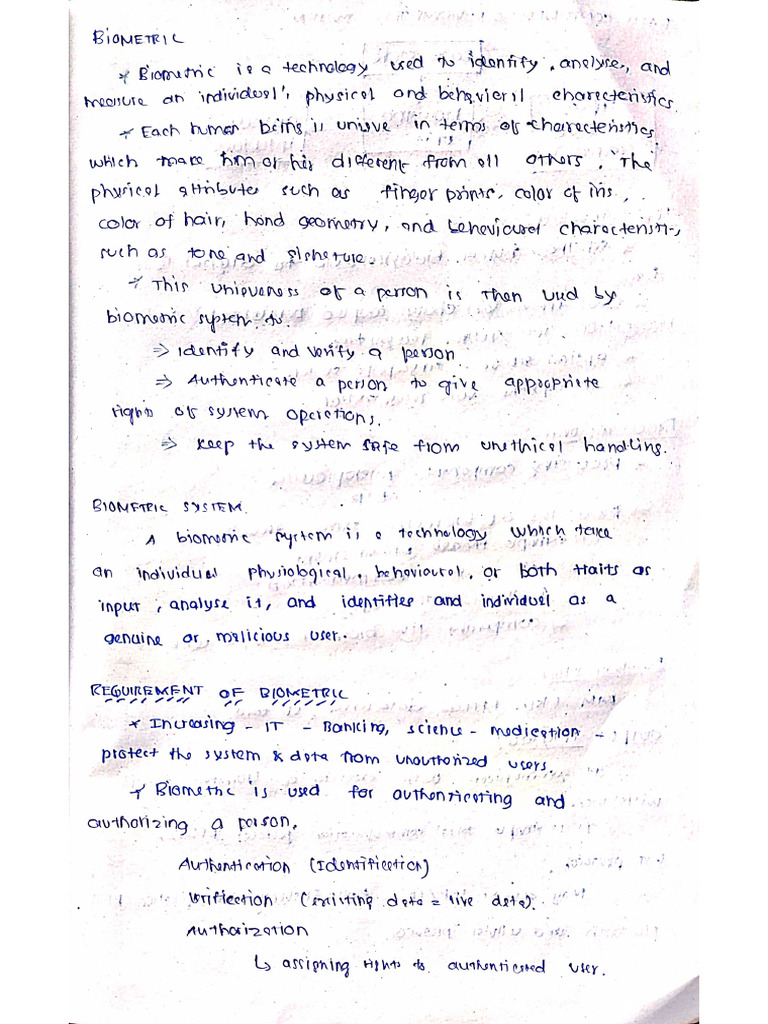 BIOMETRIC
* Biometric is a technology used to identify, analyse, and
measure an individual's physical and behavioral characteristics.
* Each human being is unique in terms of characteristics
which make him or her different from all others. The
physical attributes such as finger prints, color of iris,
color of hair, hand geometry, and behavioural characteristics,
such as tone and signature.
* This uniqueness of a person is then used by
biometric system to.
⇒ Identify and verify a person
⇒ Authenticate a person to give appropriate
rights of system operations.
⇒ Keep the system safe from unethical handling.
BIOMETRIC SYSTEM.
A biometric system is a technology which take
an individual physiological, behavioural, or both traits as
input, analyse it, and identifies and individual as a
genuine or malicious user.
REQUIREMENT OF BIOMETRIC
* Increasing - IT - Banking, science - medication -
protect the system & data from unauthorized users.
* Biometric is used for authenticating and
authorizing a person.
Authentication (Identification)
Verification (existing data = live data).
Authorization
↳ assigning rights to authenticated user.